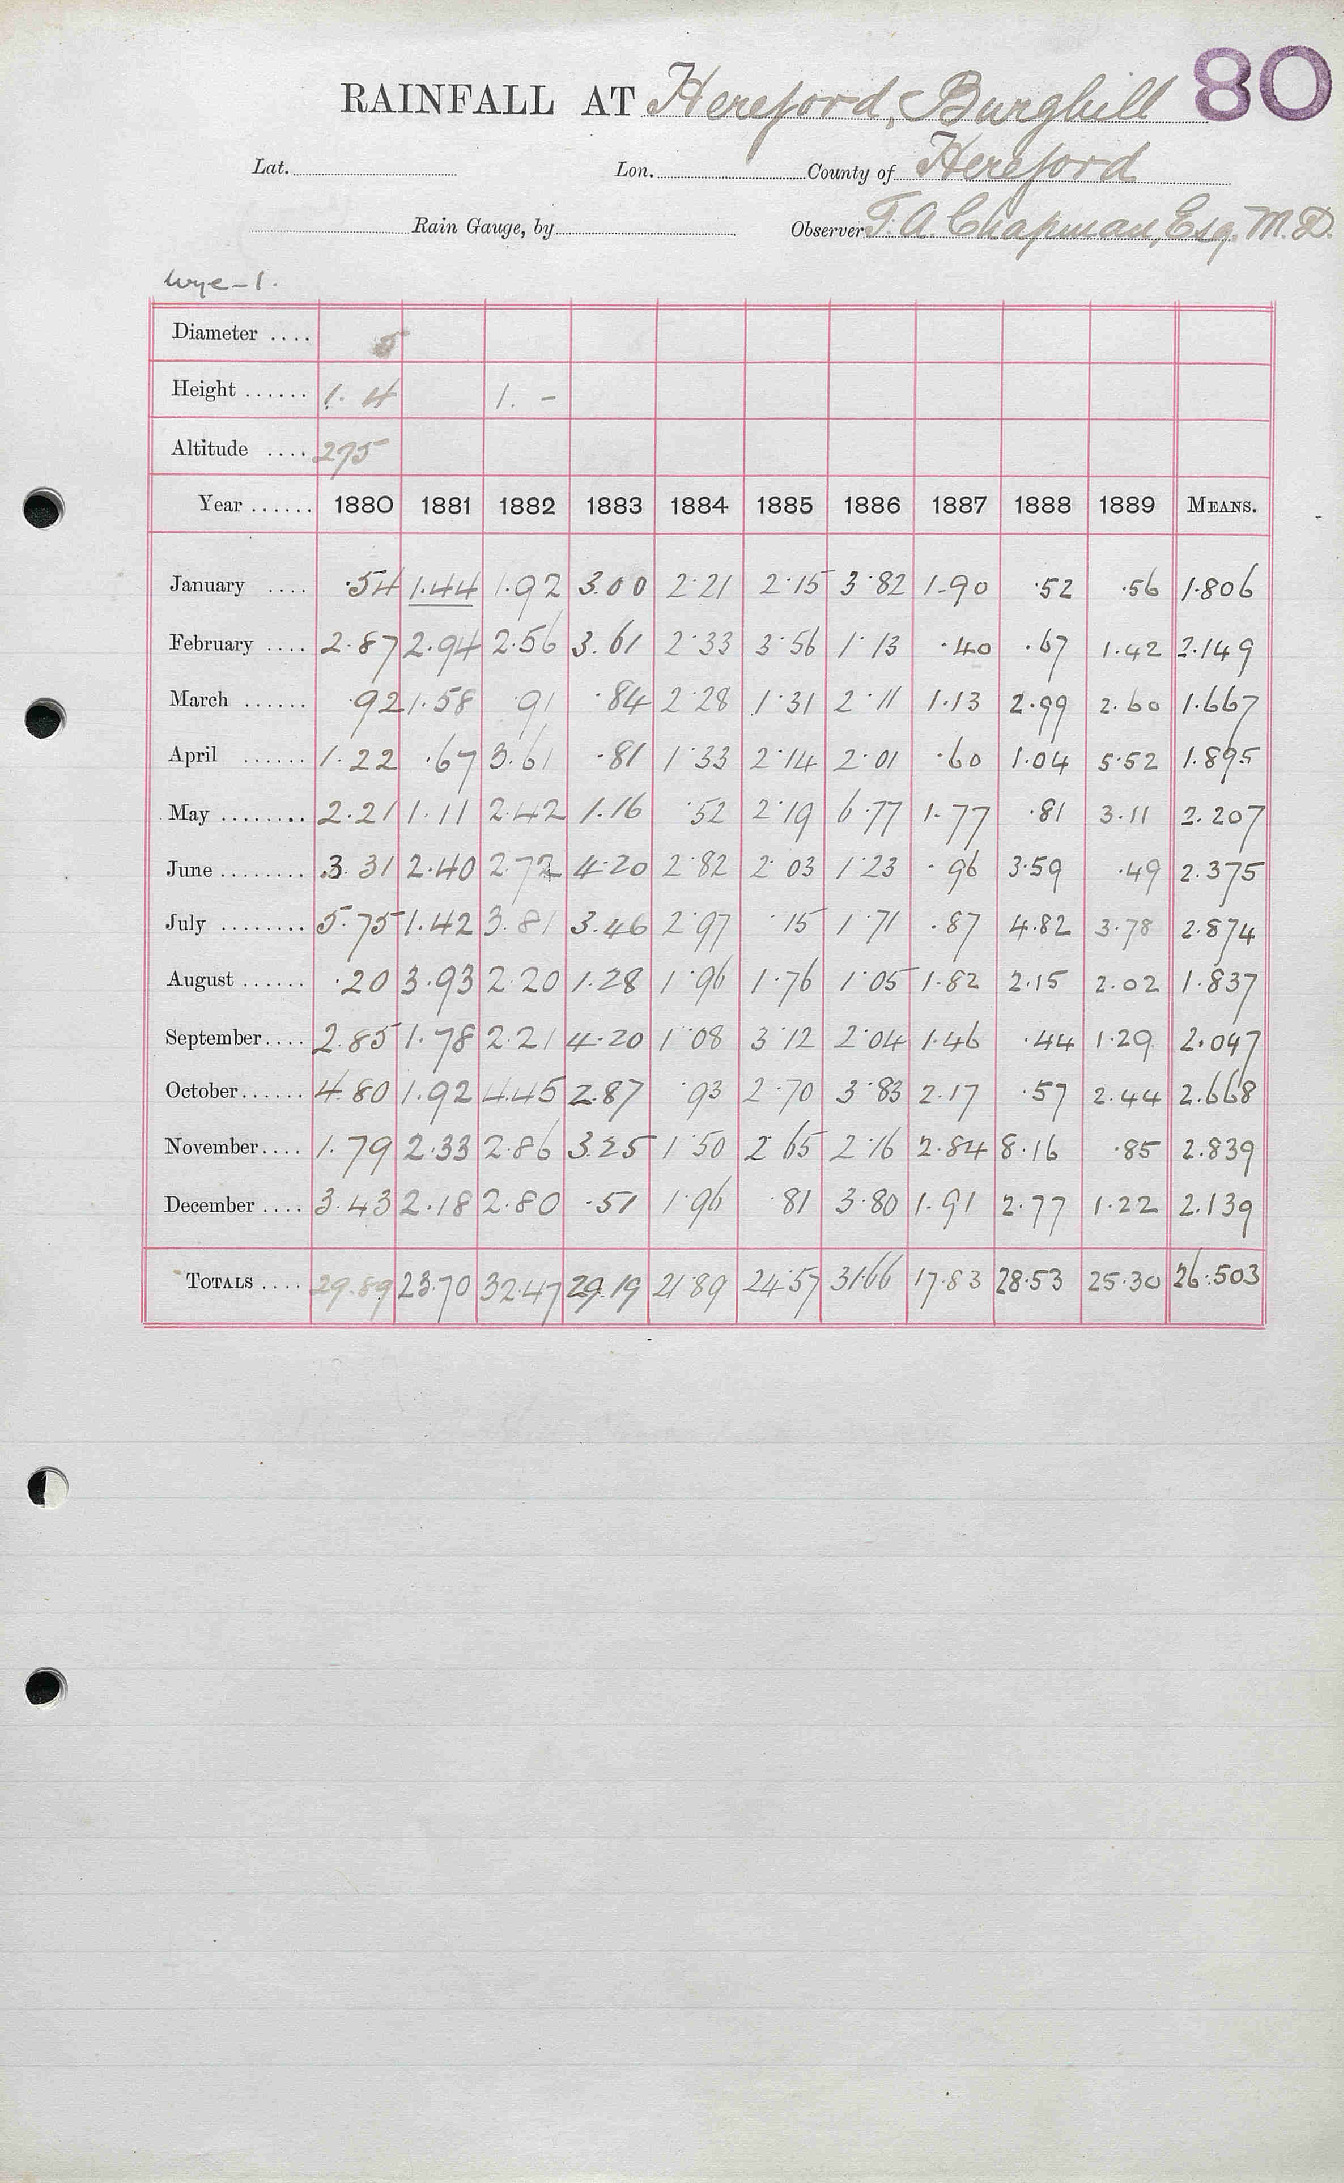 RAINFALL AT Hereford, Burghill 80
Lat. Lon. County of Hereford
Rain Gauge, by Observer T. A. Chapman, Esq. M.D.
Wye-1.
Diameter .... 5
Height ...... 1. 4 1. -
Altitude .... 275
Year ...... 1880 1881 1882 1883 1884 1885 1886 1887 1888 1889 MEANS.
January .... ·54 1.44 1.92 3.00 2·21 2·15 3·82 1.90 ·52 ·56 1·806
February .... 2.87 2.94 2.56 3.61 2·33 3·56 1·13 ·40 ·67 1.42 2.149
March ...... ·92 1.58 91 ·84 2·28 1·31 2·11 1.13 2.99 2.60 1.667
April ...... 1.22 ·67 3.61 ·81 1·33 2·14 2·01 ·60 1.04 5.52 1.895
May ........ 2.21 1.11 2.42 1.16 ·52 2·19 6·77 1.77 ·81 3.11 2.207
June ........ 3.31 2.40 2.72 4.20 2·82 2·03 1·23 ·96 3.59 ·49 2.375
July ........ 5.75 1.42 3.81 3.46 2·97 ·15 1·71 ·87 4.82 3.78 2.874
August ...... ·20 3.93 2.20 1.28 1·96 1·76 1·05 1.82 2.15 2.02 1.837
September.... 2.85 1.78 2.21 4.20 1·08 3·12 2·04 1.46 ·44 1.29 2.047
October...... 4.80 1.92 4.45 2.87 ·93 2·70 3·83 2.17 ·57 2.44 2.668
November.... 1.79 2.33 2.86 3.25 1·50 2·65 2·16 2.84 8.16 ·85 2.839
December .... 3.43 2.18 2.80 ·51 1·96 ·81 3·80 1.91 2.77 1.22 2.139
TOTALS .... 29.89 23.70 32.47 29.19 21·89 24·57 31·66 17.83 28.53 25.30 26.503